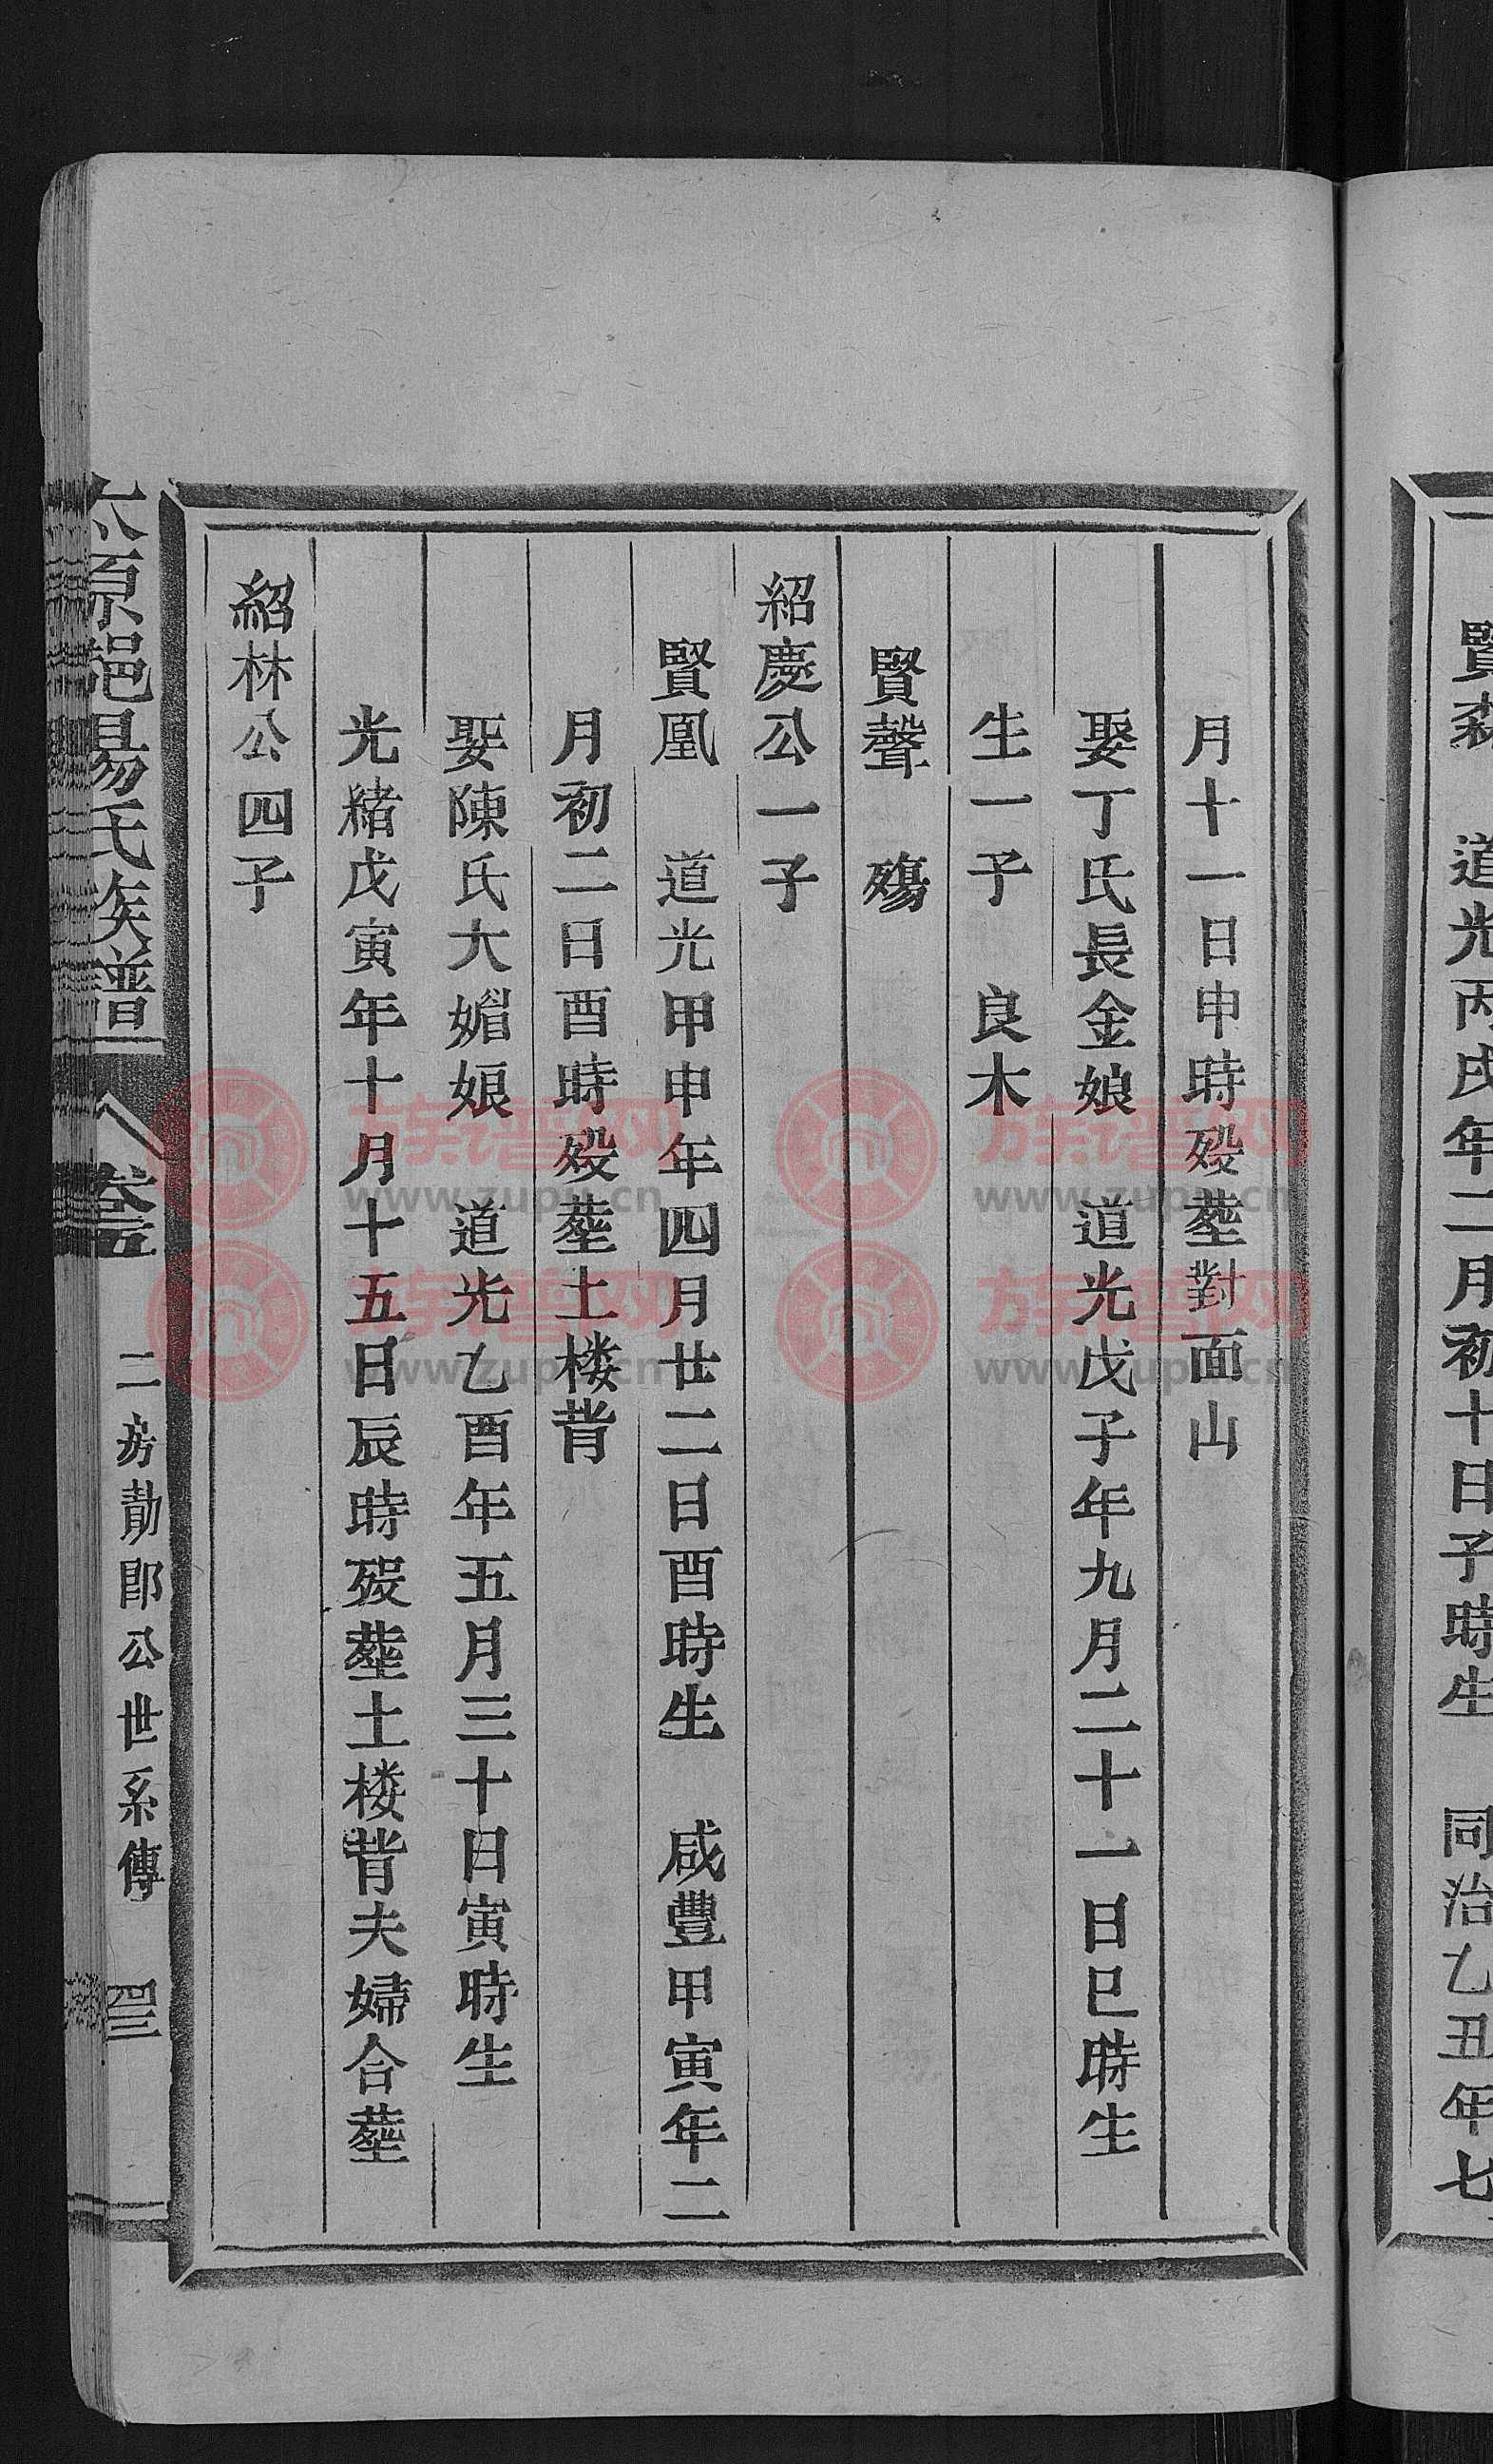 賢森 道光丙戌年二月初十日子時生 同治乙丑年七
月十一日申時殁塟對面山
娶丁氏長金娘 道光戊子年九月二十一日巳時生
生一子 良木
賢聲 殤
紹慶公一子
賢凰 道光甲申年四月廿二日酉時生 咸豐甲寅年二
月初二日酉時殁塟土楼背
娶陳氏大媚娘 道光乙酉年五月三十日寅時生
光緒戊寅年十月十五日辰時殁塟土楼背夫婦合塟
紹林公四子
太原郡易氏族譜 卷五 二房勛郎公世系傳 四三
族谱网
www.zupu.cn
族谱网
www.zupu.cn
族谱网
www.zupu.cn
族谱网
www.zupu.cn